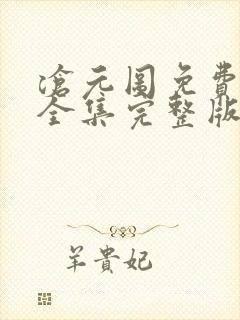 滄元圖免費
全集完整版
羊貴妃